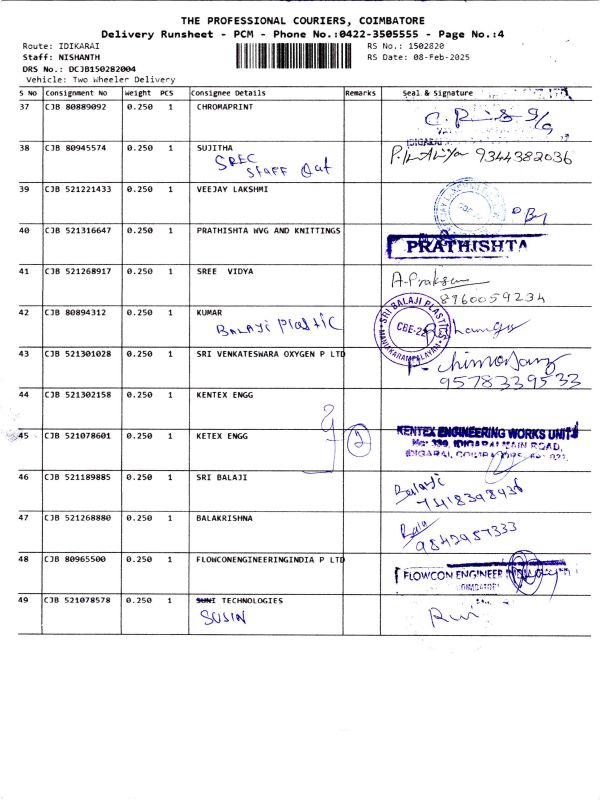 THE PROFESSIONAL COURIERS, COIMBATORE
Delivery Runsheet - PCM - Phone No.:0422-3505555 - Page No.:4
Route: IDIKARAI
RS No.: 1502820
Staff: NISHANTH
RS Date: 08-Feb-2025
DRS No.: DCJB150282004
Vehicle: Two Wheeler Delivery
S No Consignment No Weight PCS Consignee Details Remarks Seal & Signature
37 CJB 80889092 0.250 1 CHROMAPRINT
38 CJB 80945574 0.250 1 SUJITHA 9344382036
SREC
STAFF Qat
39 CJB 521221433 0.250 1 VEEJAY LAKSHMI
40 CJB 521316647 0.250 1 PRATHISHTA WVG AND KNITTINGS
PRATHISHTA
41 CJB 521268917 0.250 1 SREE VIDYA
8960059234
42 CJB 80894312 0.250 1 KUMAR
BALAJI Plastic
SRI BALAJI PLASTICS
CBE-22
43 CJB 521301028 0.250 1 SRI VENKATESWARA OXYGEN P LTD
9578339533
44 CJB 521302158 0.250 1 KENTEX ENGG
45 CJB 521078601 0.250 1 KETEX ENGG 2
KENTEX ENGINEERING WORKS UNIT
No: 339, IDIGARAI MAIN ROAD,
46 CJB 521189885 0.250 1 SRI BALAJI
Balaji
7418398936
47 CJB 521268880 0.250 1 BALAKRISHNA
Bala
9842957333
48 CJB 80965500 0.250 1 FLOWCONENGINEERINGINDIA P LTD
FLOWCON ENGINEER
49 CJB 521078578 0.250 1 SUNI TECHNOLOGIES
SUSIN